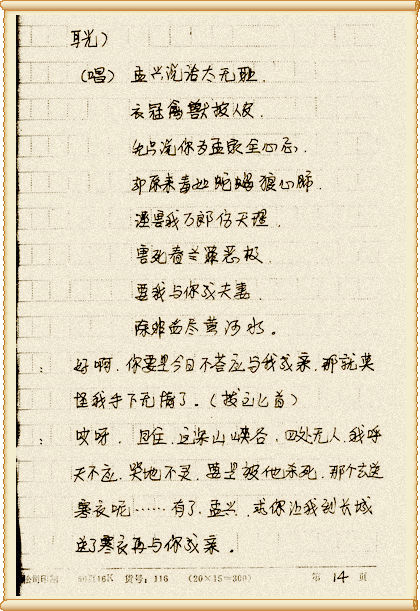 耳光）
（唱）孟兴说话太无理，
衣冠禽兽披人皮，
先只说你为孟家全心意，
却原来毒如蛇蝎狼心肺，
逼害我万郎伤天理，
害死老爷罪恶极，
要我与你成夫妻，
除非喝尽黄河水。
：好啊，你要是今日不答应与我成亲，那就莫
怪我手下无情了。（拔出匕首）
：哎呀，且住，这深山峡谷，四处无人，我呼
天不应，哭地不灵，要是被他杀死，那个去送
寒衣呢……有了，孟兴，求你让我到长城
送了寒衣再与你成亲。
公司印制 60克16K 货号：116 （20×15=300） 第 14 页